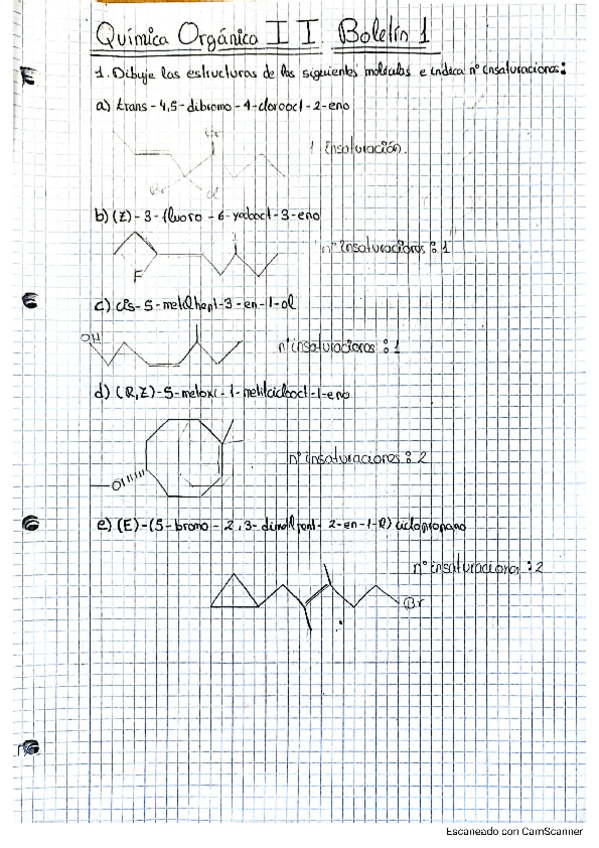 Química Orgánica II Boletín 1
1. Dibuje las estructuras de las siguientes moléculas e indica nº insaturaciones:
a) trans-4,5-dibromo-4-clorooct-2-eno
Br
1 insaturación.
Br
Cl
b) (Z)-3-fluoro-6-yodooct-3-eno
I
nº insaturaciones: 1
F
c) cis-5-metilhept-3-en-1-ol
OH
nº insaturaciones: 1
d) (R,Z)-5-metoxi-1-metilciclooct-1-eno
nº insaturaciones: 2
O
e) (E)-(5-bromo-2,3-dimetilpent-2-en-1-il) ciclopropano
nº insaturaciones: 2
Br
Escaneado con CamScanner